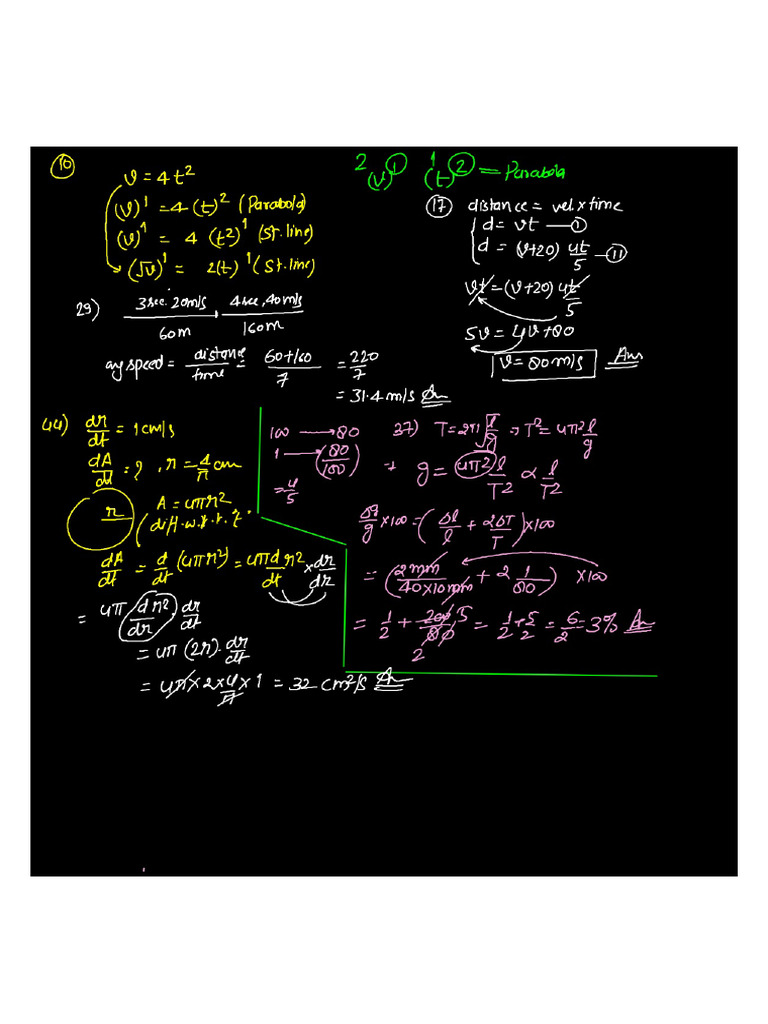 10
v = 4t²
(v)¹ = 4(t)² (Parabola)
(v)¹ = 4 (t²)¹ (St.line)
(√v)¹ = 2(t)¹ (St.line)
2 (v)¹ 1 (t)² = Parabola
17 distance = vel × time
d = vt — I
d = (v+20) 4t/5 — II
vt = (v+20) 4t/5
5v = 4v+80
v = 80m/s Ans
29) 3sec. 20m/s 4sec, 40m/s
60m 160m
avg speed = distance/time = 60+160/7 = 220/7
= 31.4 m/s Ans
44) dr/dt = 1 cm/s
dA/dt = ?, r = 4/π cm
r A = 4πr²
diff. w.r.t. t.
dA/dt = d/dt (4πr²) = 4π dr²/dt × dr/dr
= 4π dr²/dr dr/dt
= 4π (2r). dr/dt
= 4π × 2 × 4/π × 1 = 32 cm²/s Ans
100 → 80
1 → (80/100)
= 4/5
37) T = 2π √l/g → T² = 4π² l/g
g = 4π² l/T² ∝ l/T²
Δg/g × 100 = (Δl/l + 2ΔT/T) × 100
= (2mm/40×10mm + 2 1/80) × 100
= 1/2 + 200/80 5 2 = 1/2 + 5/2 = 6/2 = 3% Ans